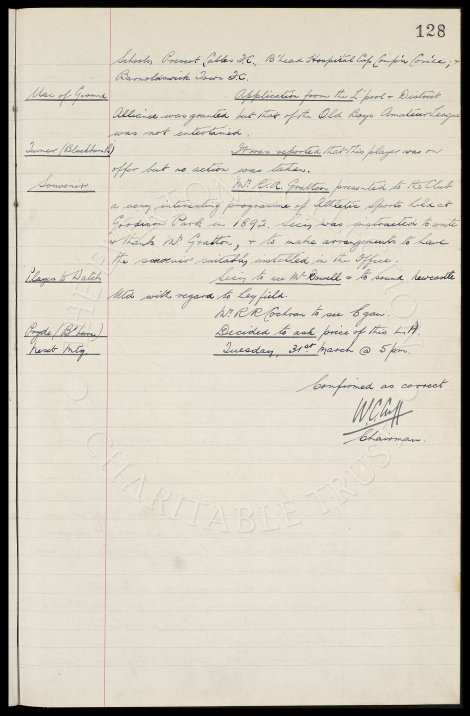 128
Schools, Prescot Cables F.C., B'head Hospital Cup Comp'n Com'ee, &
Barnoldswick Town F.C.
Use of Ground Application from the L'pool & District
Alliance was granted but that of the Old Boys Amateur League
was not entertained.
Turner (Blackburn R) It was reported that this player was on
offer but no action was taken.
Souvenir Mr. R.R. Gratton presented to the Club
a very interesting programme of Athletic Sports held at
Goodison Park in 1892. Secy was instructed to write
& thank Mr Gratton, & to make arrangements to have
the souvenir suitably installed in the Office.
Players to Watch Secy to see McDowell & to sound Newcastle
Utd with regard to Leyfield.
Mr R R Cochran to see Egan.
Pryde (B'burn) Decided to ask price of this L.H.
Next Mtg. Tuesday, 31st March @ 5 pm.
Confirmed as correct
W.C. Cuff
Chairman.
CHARITABLE TRUST